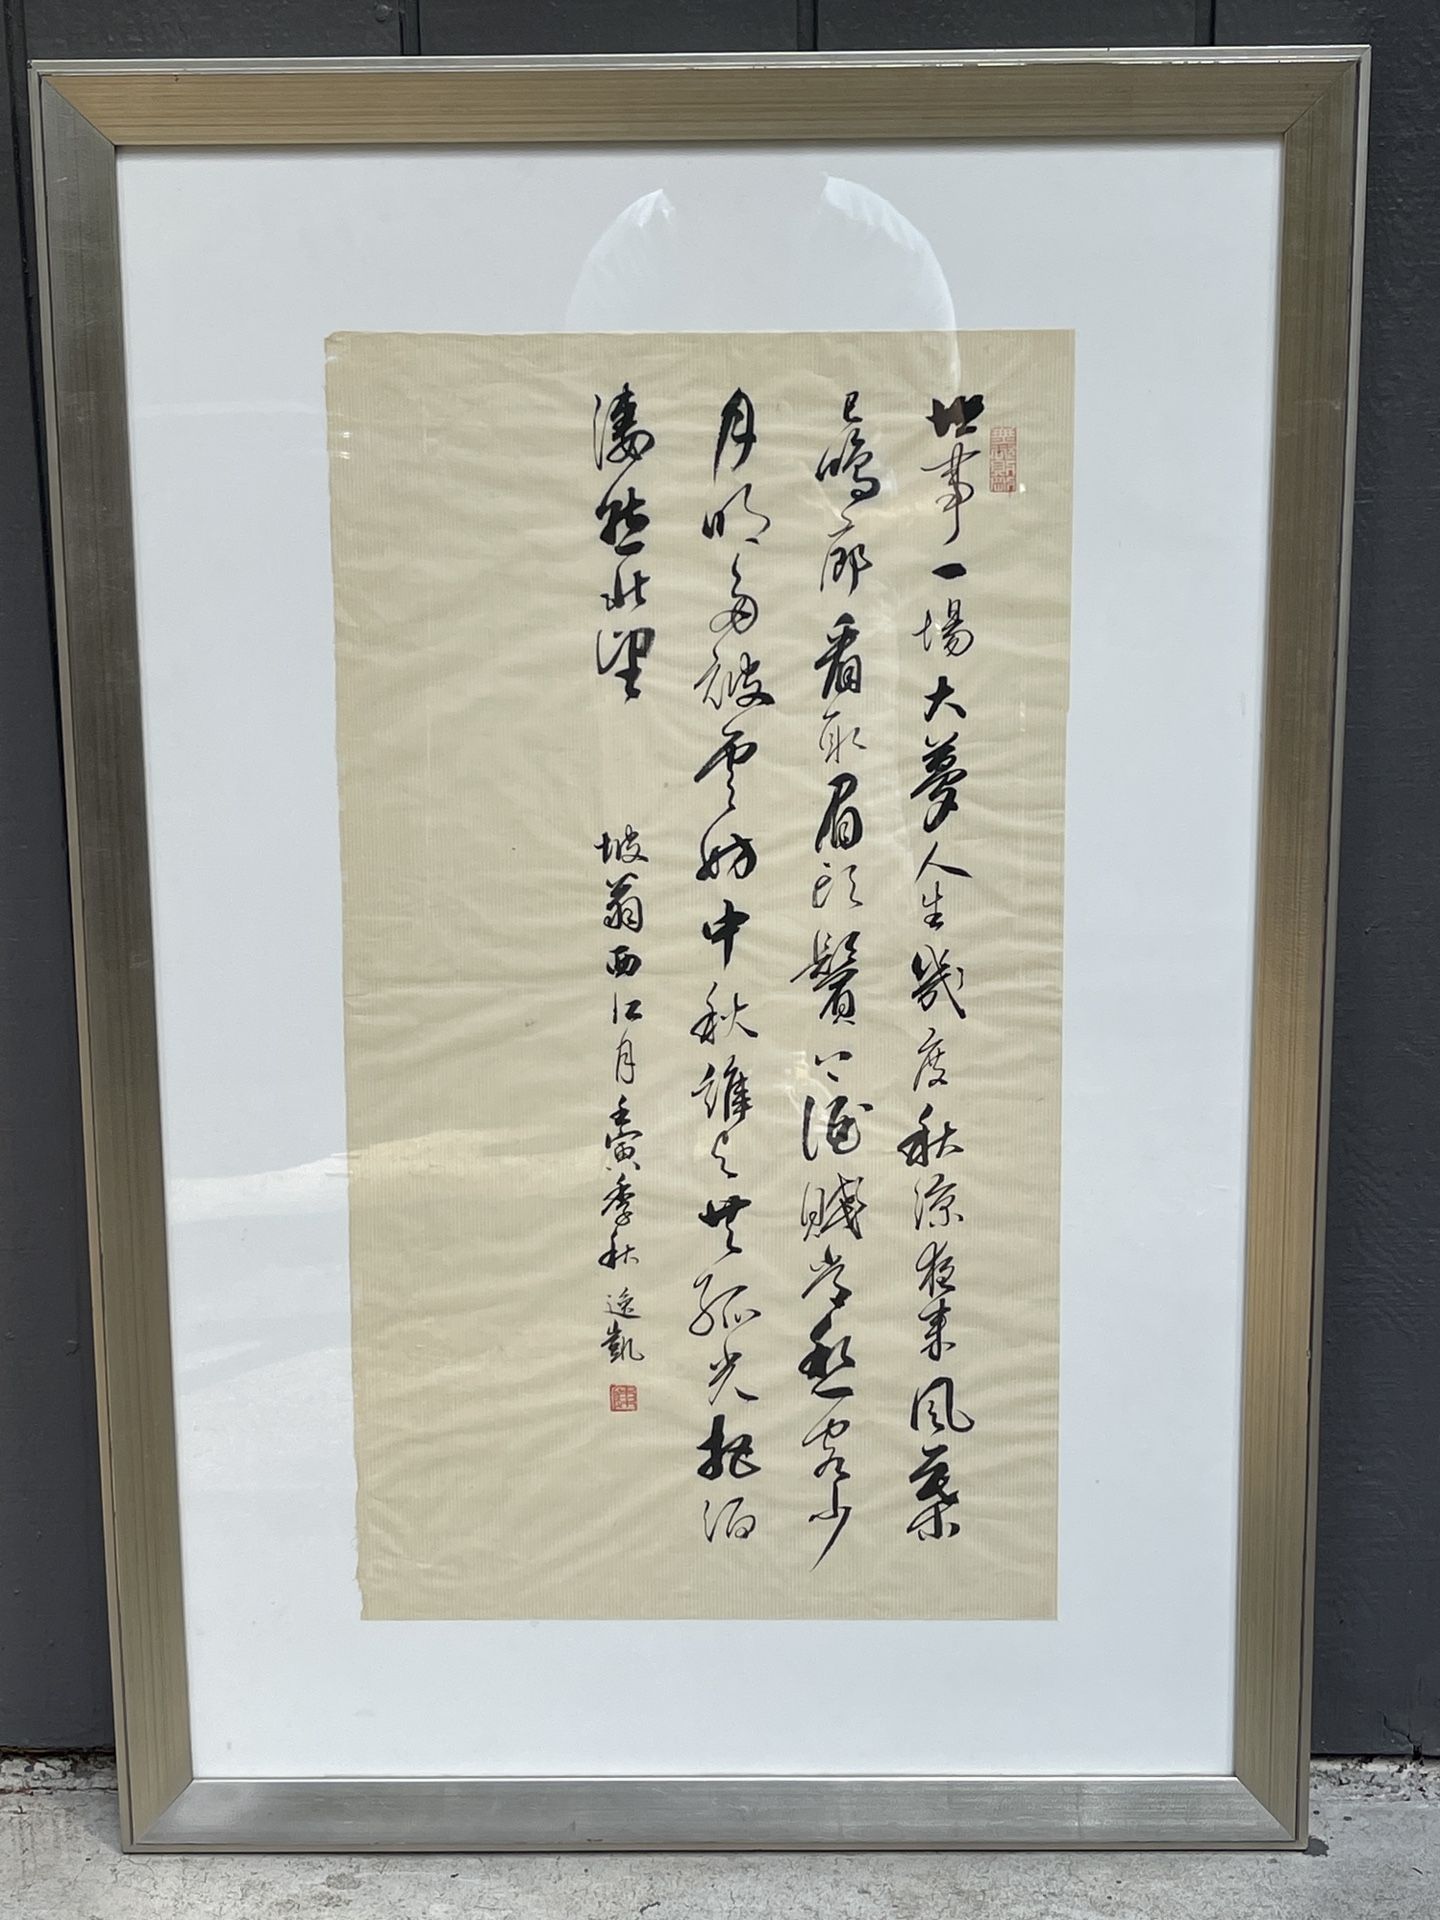 世事一場大夢人生幾度秋涼夜來風葉
已鳴廊看取眉頭鬢上酒賤常愁客少
月明多被雲妨中秋誰與共孤光把酒
淒然北望 坡翁西江月 壬寅季秋 逸凱